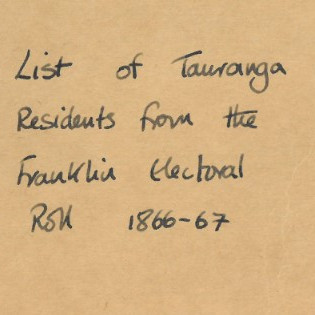 List of Tauranga
Residents from the
Franklin Electoral
Roll 1866-67